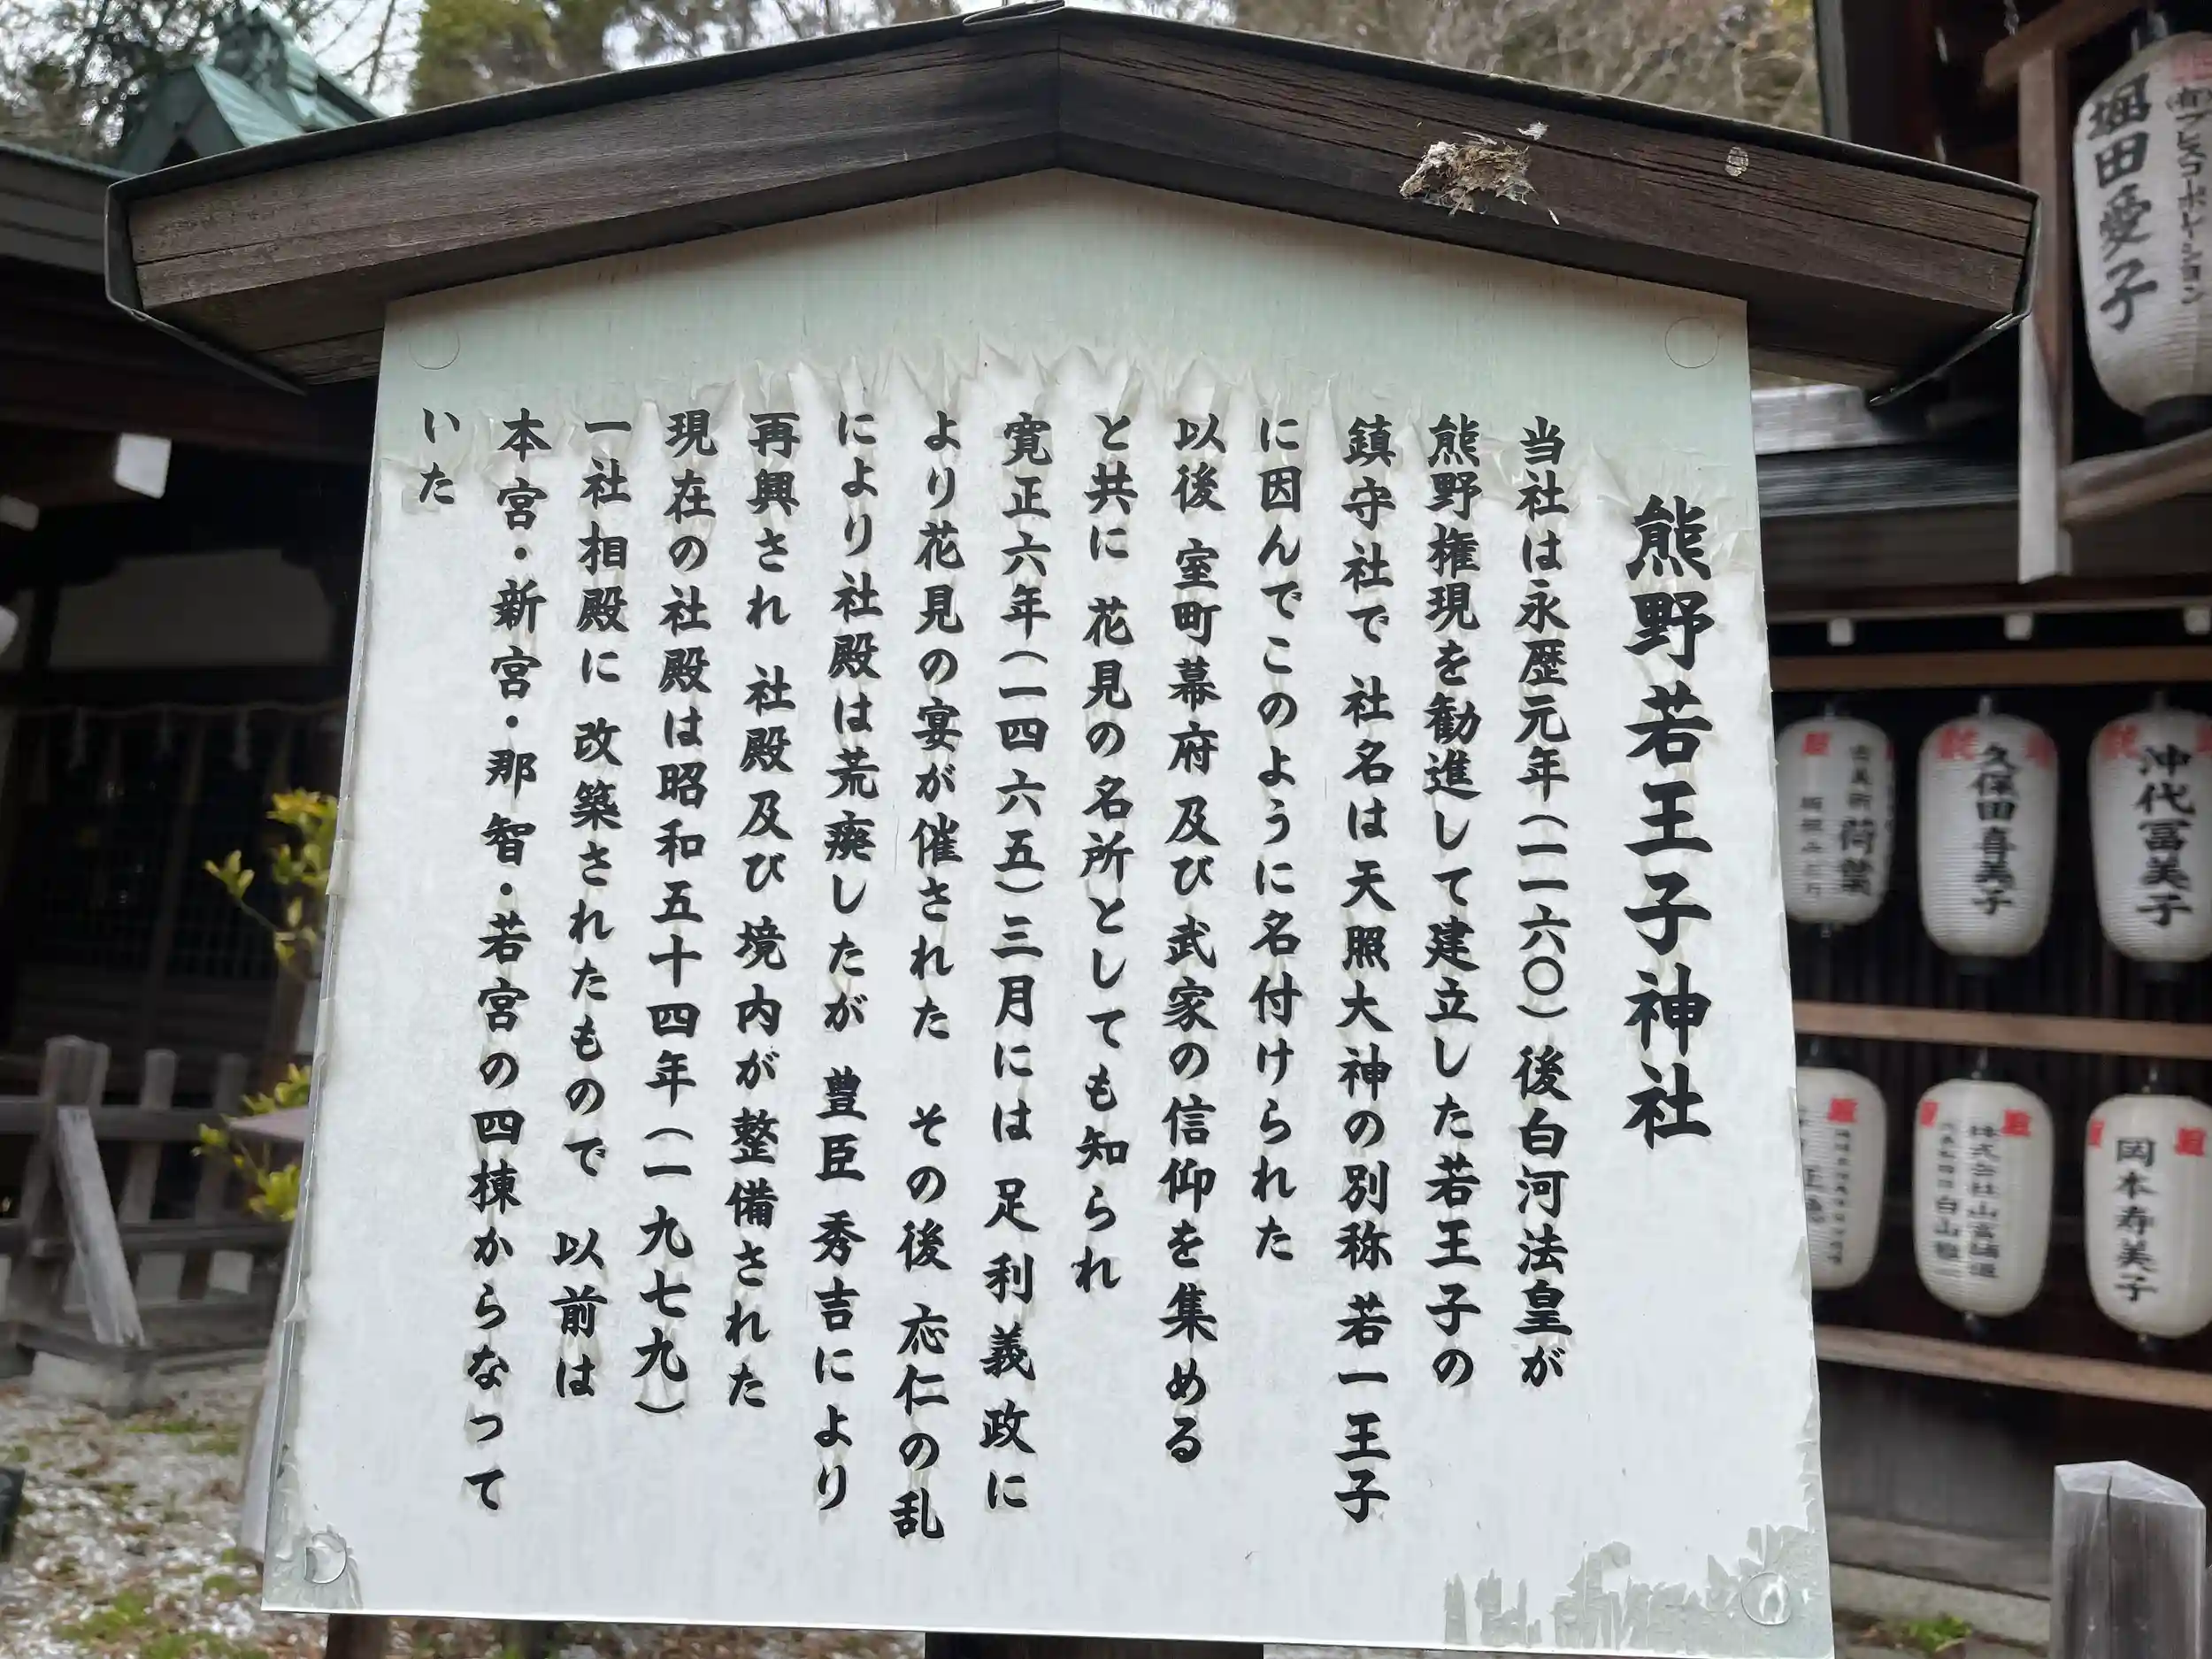 熊野若王子神社
当社は永歴元年(一一六〇)後白河法皇が
熊野権現を勧進して建立した若王子の
鎮守社で 社名は天照大神の別称 若一王子
に因んでこのように名付けられた
以後 室町幕府 及び武家の信仰を集める
と共に 花見の名所としても知られ
寛正六年(一四六五)三月には 足利義政に
より花見の宴が催された その後 応仁の乱
により社殿は荒廃したが 豊臣秀吉により
再興され 社殿及び境内が整備された
現在の社殿は昭和五十四年(一九七九)
一社相殿に 改築されたもので 以前は
本宮・新宮・那智・若宮の四棟からなって
いた
堀田愛子
沖代冨美子
久保田喜美子
岡本寿美子